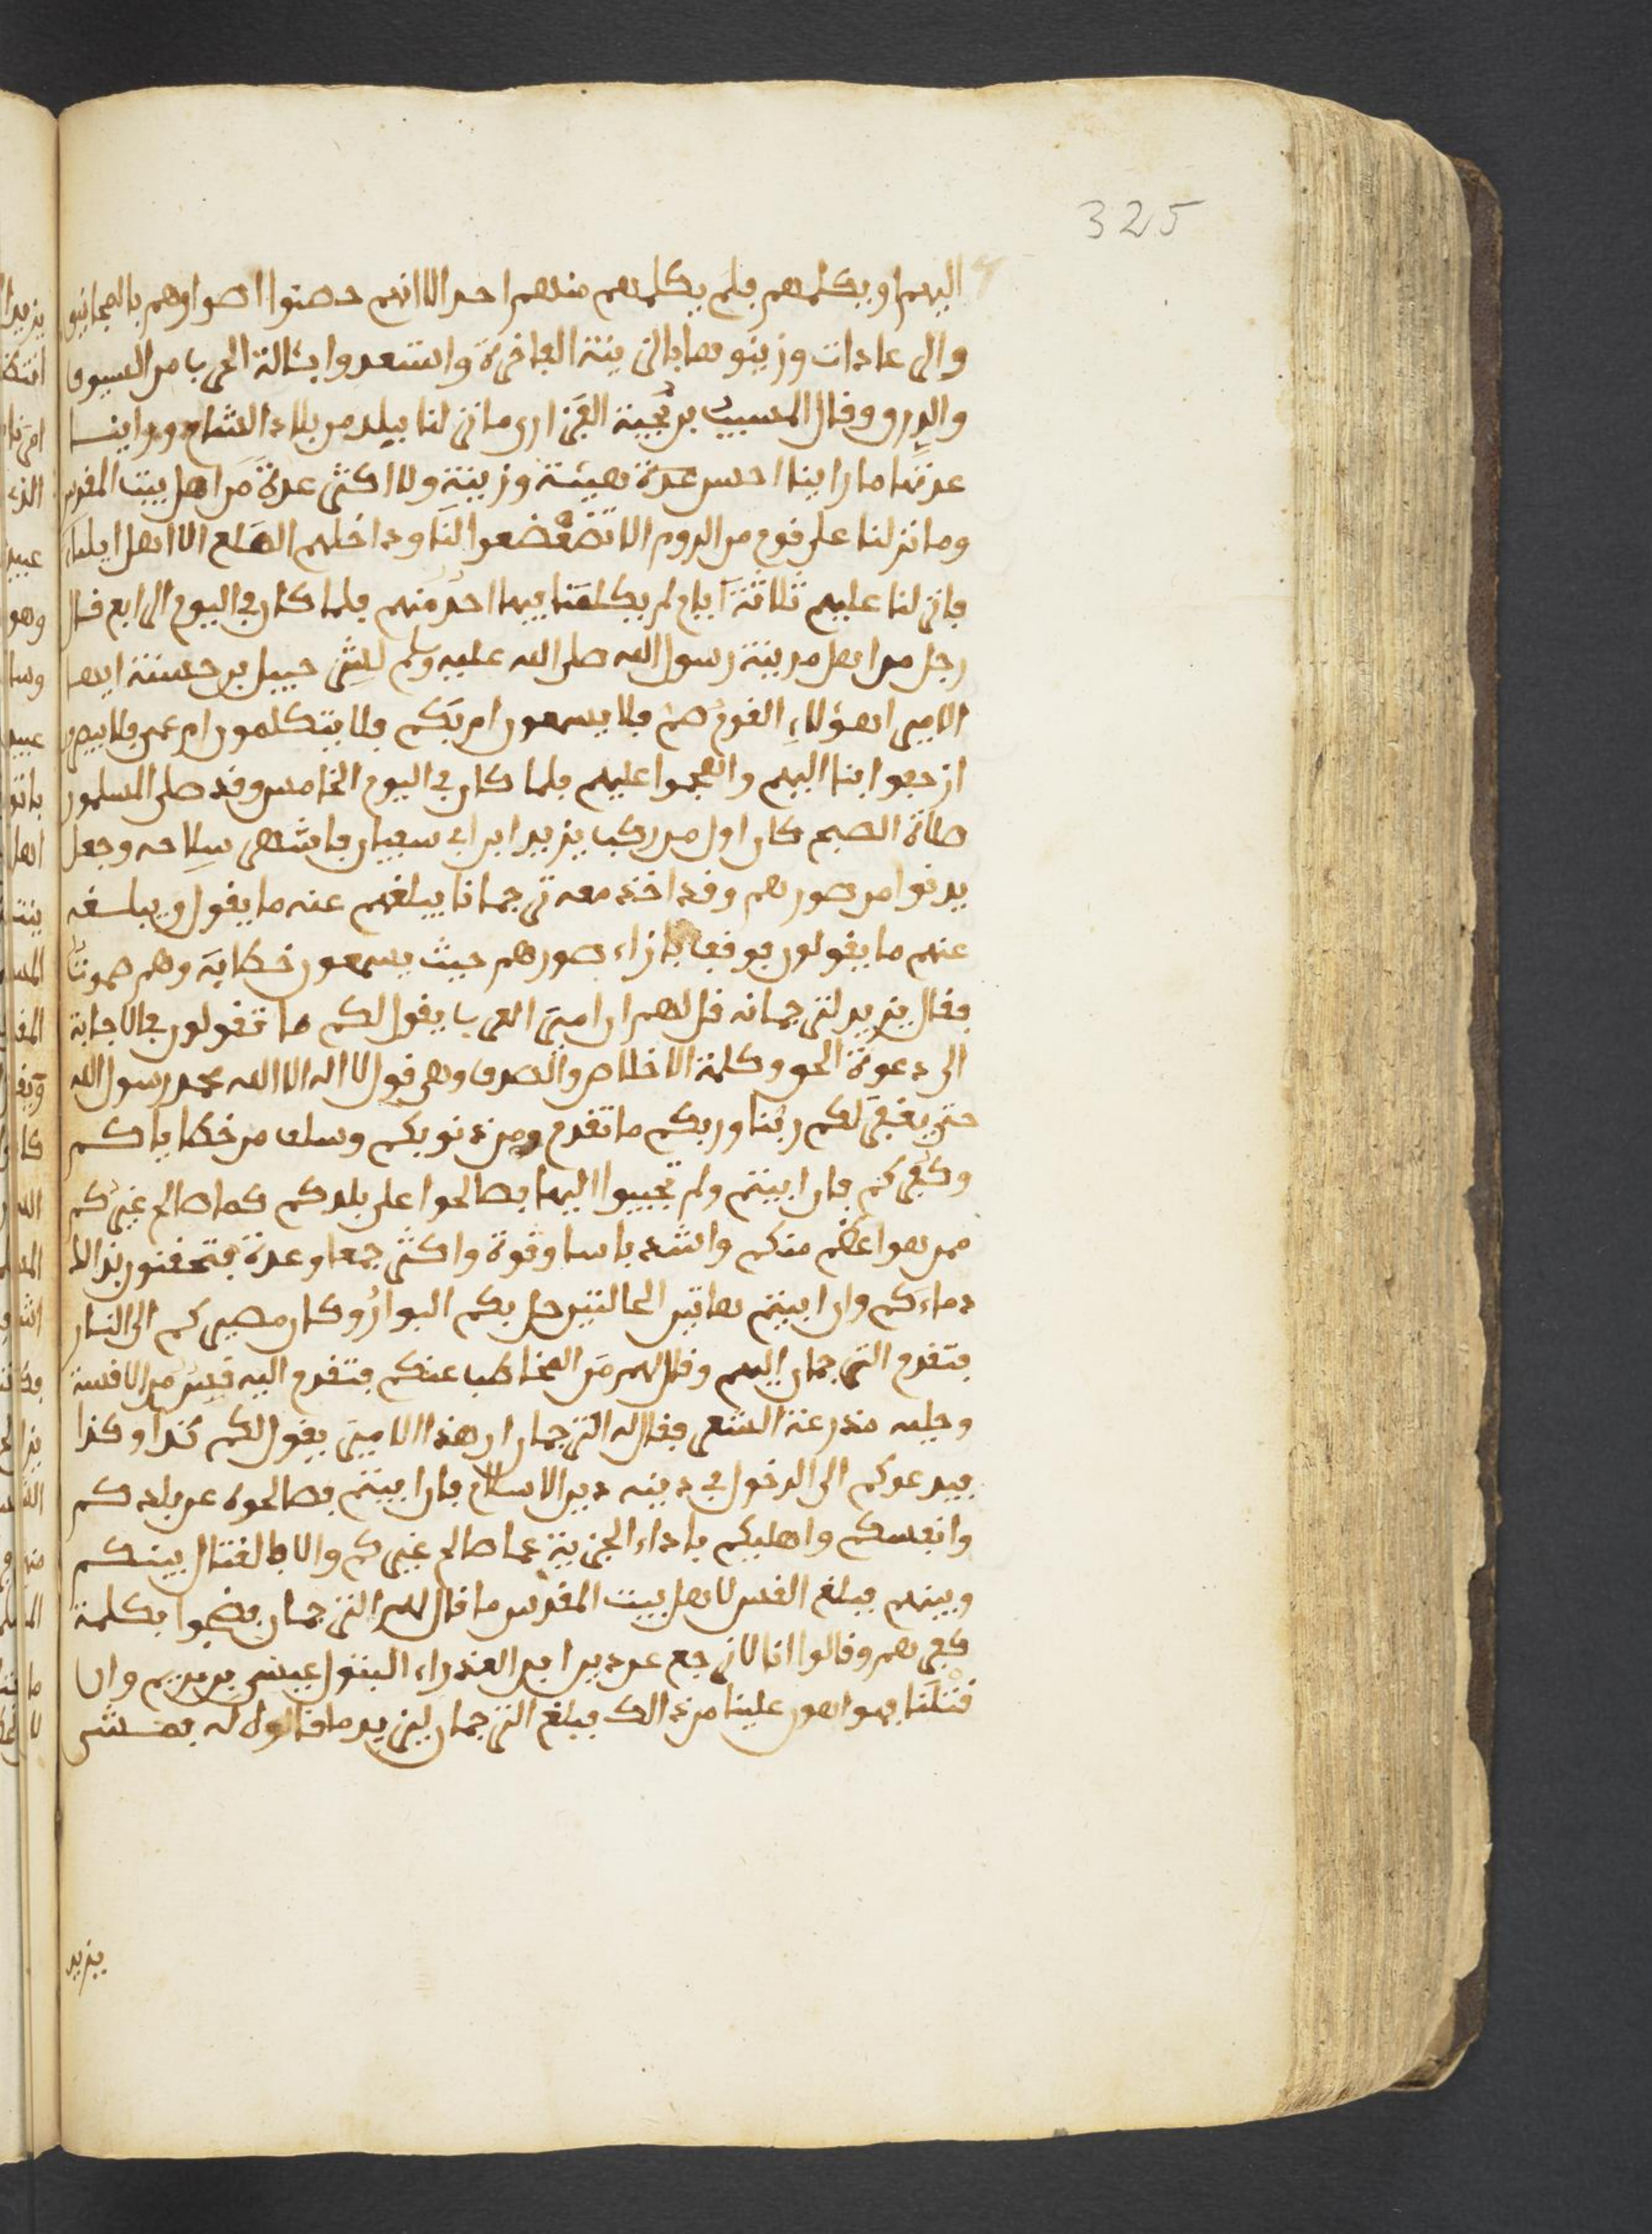 325
اليهم او يكلمهم فلم يكلمهم منهم احد الا انهم حصنوا اصوارهم بالمجانيق
والرعادات وزينوها بالزينة الفاخرة واستعدوا بئالة الحرب من السيوف
والدرق وقال المسيب بن نجيبة الفزاري ما نزلنا ببلد من بلاد الشام وراينا
عدتها ما راينا احسن عدة هيئة وزينة ولا اكثر عدة من اهل بيت المقدس
وما نزلنا على قوم من الروم الا تضعضعوا لنا وداخلهم الهلع الا اهل ايلياء
فانزلنا عليهم ثلاثة ايام لم يكلمنا فيها احد منهم فلما كان في اليوم الرابع قال
رجل من اهل مدينة رسول الله صلى الله عليه وسلم لشرحبيل بن حسنة ايها
الامير اهؤلاء القوم صم فلا يسمعون ام بكم فلا يتكلمون ام عمي فلا يبصرون
ازحفوا بنا اليهم واهجموا عليهم فلما كان في اليوم الخامس وقد صلى المسلمون
صلاة الصبح كان اول من ركب يزيد ابن ابي سفيان فاشهر سلاحه وجعل
يدنوا من صورهم وقد اخذ معه ترجمانا يبلغهم عنه ما يقول ويبلغه
عنهم ما يقولون فوقف بازاء صورهم حيث يسمعون خطابه وهم صموت
فقال يزيد لترجمانه قل لهم ان امير العرب يقول لكم ما تقولون في الاجابة
الى دعوة الحق وكلمة الاخلاص والصدق وهي قول لا اله الا الله محمد رسول الله
حتى يغفر لكم ربنا وربكم ما تقدم من ذنوبكم وسلف من خطاياكم
وكفركم فان ابيتم ولم تجيبوا اليها فصالحوا على بلدكم كما صالح غيركم
ممن هو اعظم منكم واشد باسا وقوة واكثر جمعا وعدة فتحقنون بذالك
دماءكم وان ابيتم هاتين الحالتين حل بكم البوار وكان مصيركم الى النار
فتقدم الترجمان اليهم وقال لهم من المخاطب عنكم فتقدم اليه قس من الاقسة
وعليه مدرعة الشعر فقال له الترجمان ان هذا الامير يقول لكم كذا وكذا
فيدعوكم الى الدخول في دينه دين الاسلام فان ابيتم فصالحوه عن بلدكم
وانفسكم واهليكم باداء الجزية كما صالح غيركم والا فالقتال بينكم
وبينهم فبلغ القس لاهل بيت المقدس ما قال لهم الترجمان فضجوا بكلمة
كفرهم وقالوا انا لا نرجع عن دين ابن العذراء البتول عيسى بن مريم وان
قتلنا فهو اهون علينا من ذالك فبلغ الترجمان ليزيد ما قالوا له
يزيد